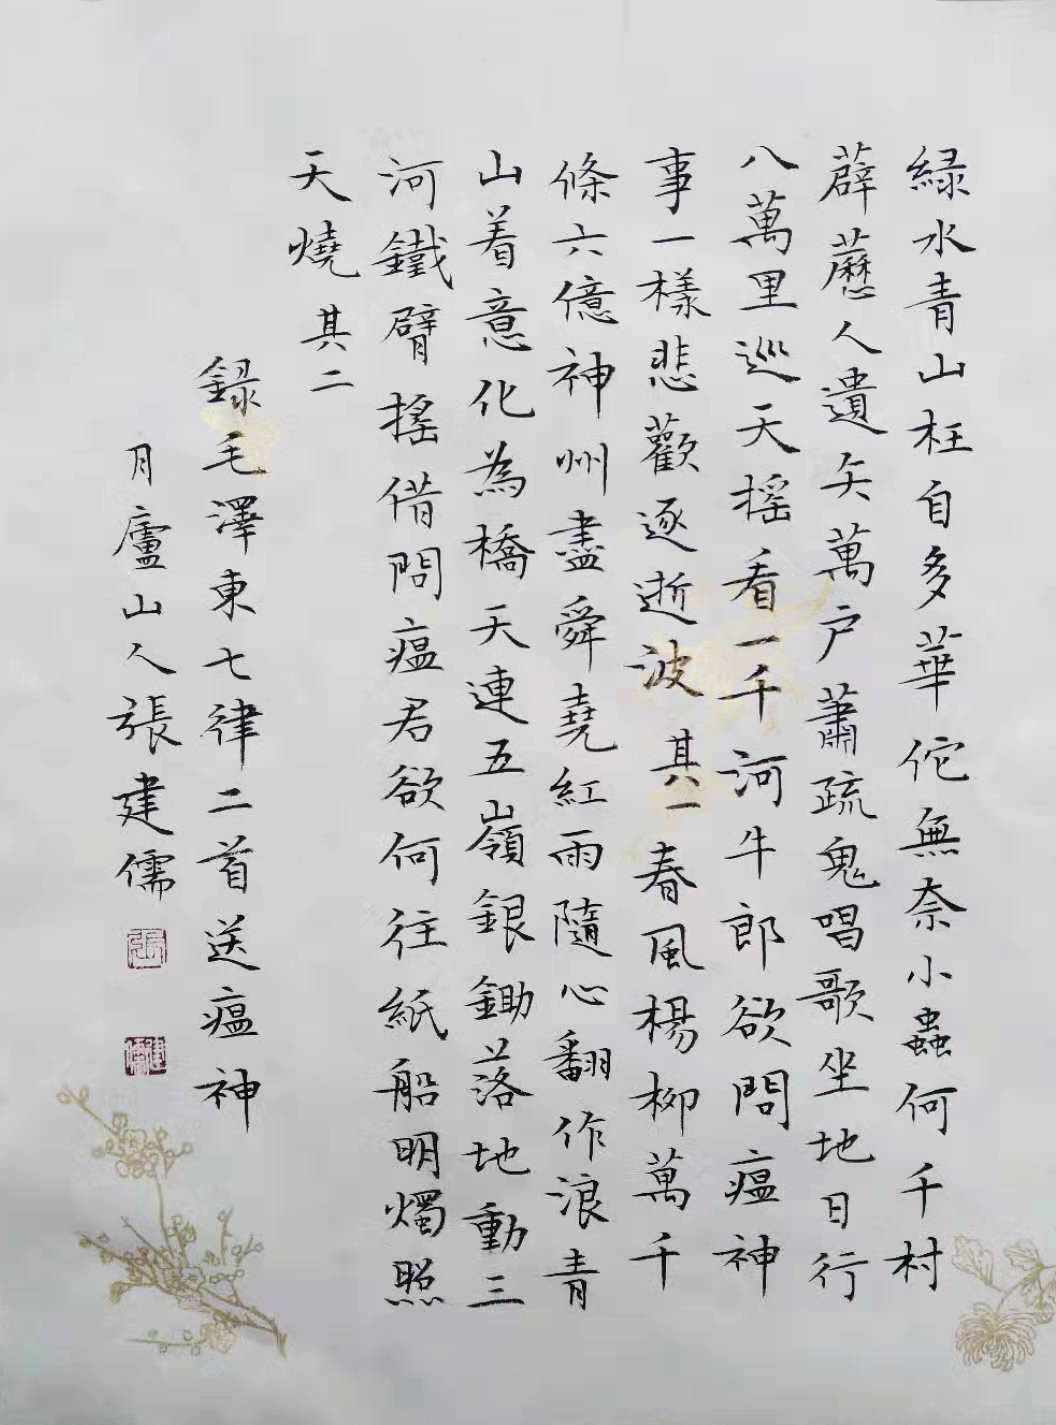 綠水青山枉自多華佗無奈小蟲何千村
薜藶人遺矢萬户蕭疏鬼唱歌坐地日行
八萬里巡天摇看一千河牛郎欲問瘟神
事一樣悲歡逐逝波其一春風楊柳萬千
條六億神州盡舜堯紅雨隨心翻作浪青
山着意化為橋天連五嶺銀鋤落地動三
河鐵臂摇借問瘟君欲何往紙船明燭照
天燒其二
録毛澤東七律二首送瘟神
月廬山人張建儒
張
建儒